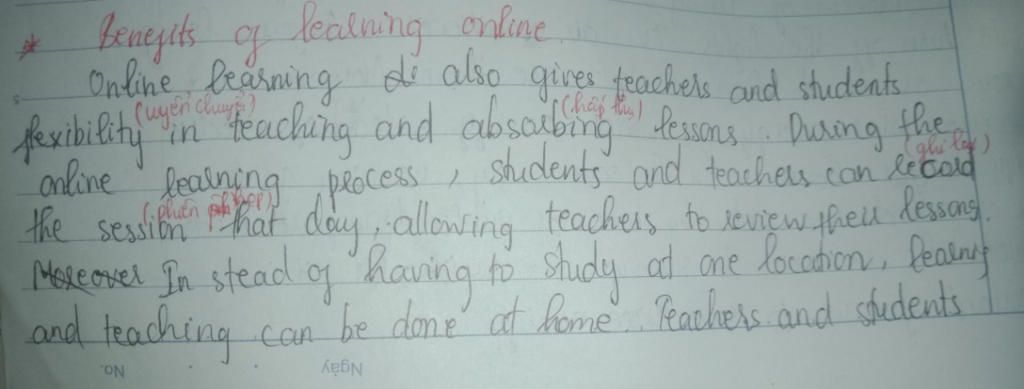 * Benefits of learning online.
Online learning do also gives teachers and students
(uyển chuyển) (hấp thụ)
flexibility in teaching and absorbing lessons. During the
(ghi lại)
online learning process, students and teachers can record
(phiên họp)
the session that day, allowing teachers to review their lessons.
Moreover In stead of having to study at one location, learning
and teaching can be done at home. Teachers and students
No. Ngày